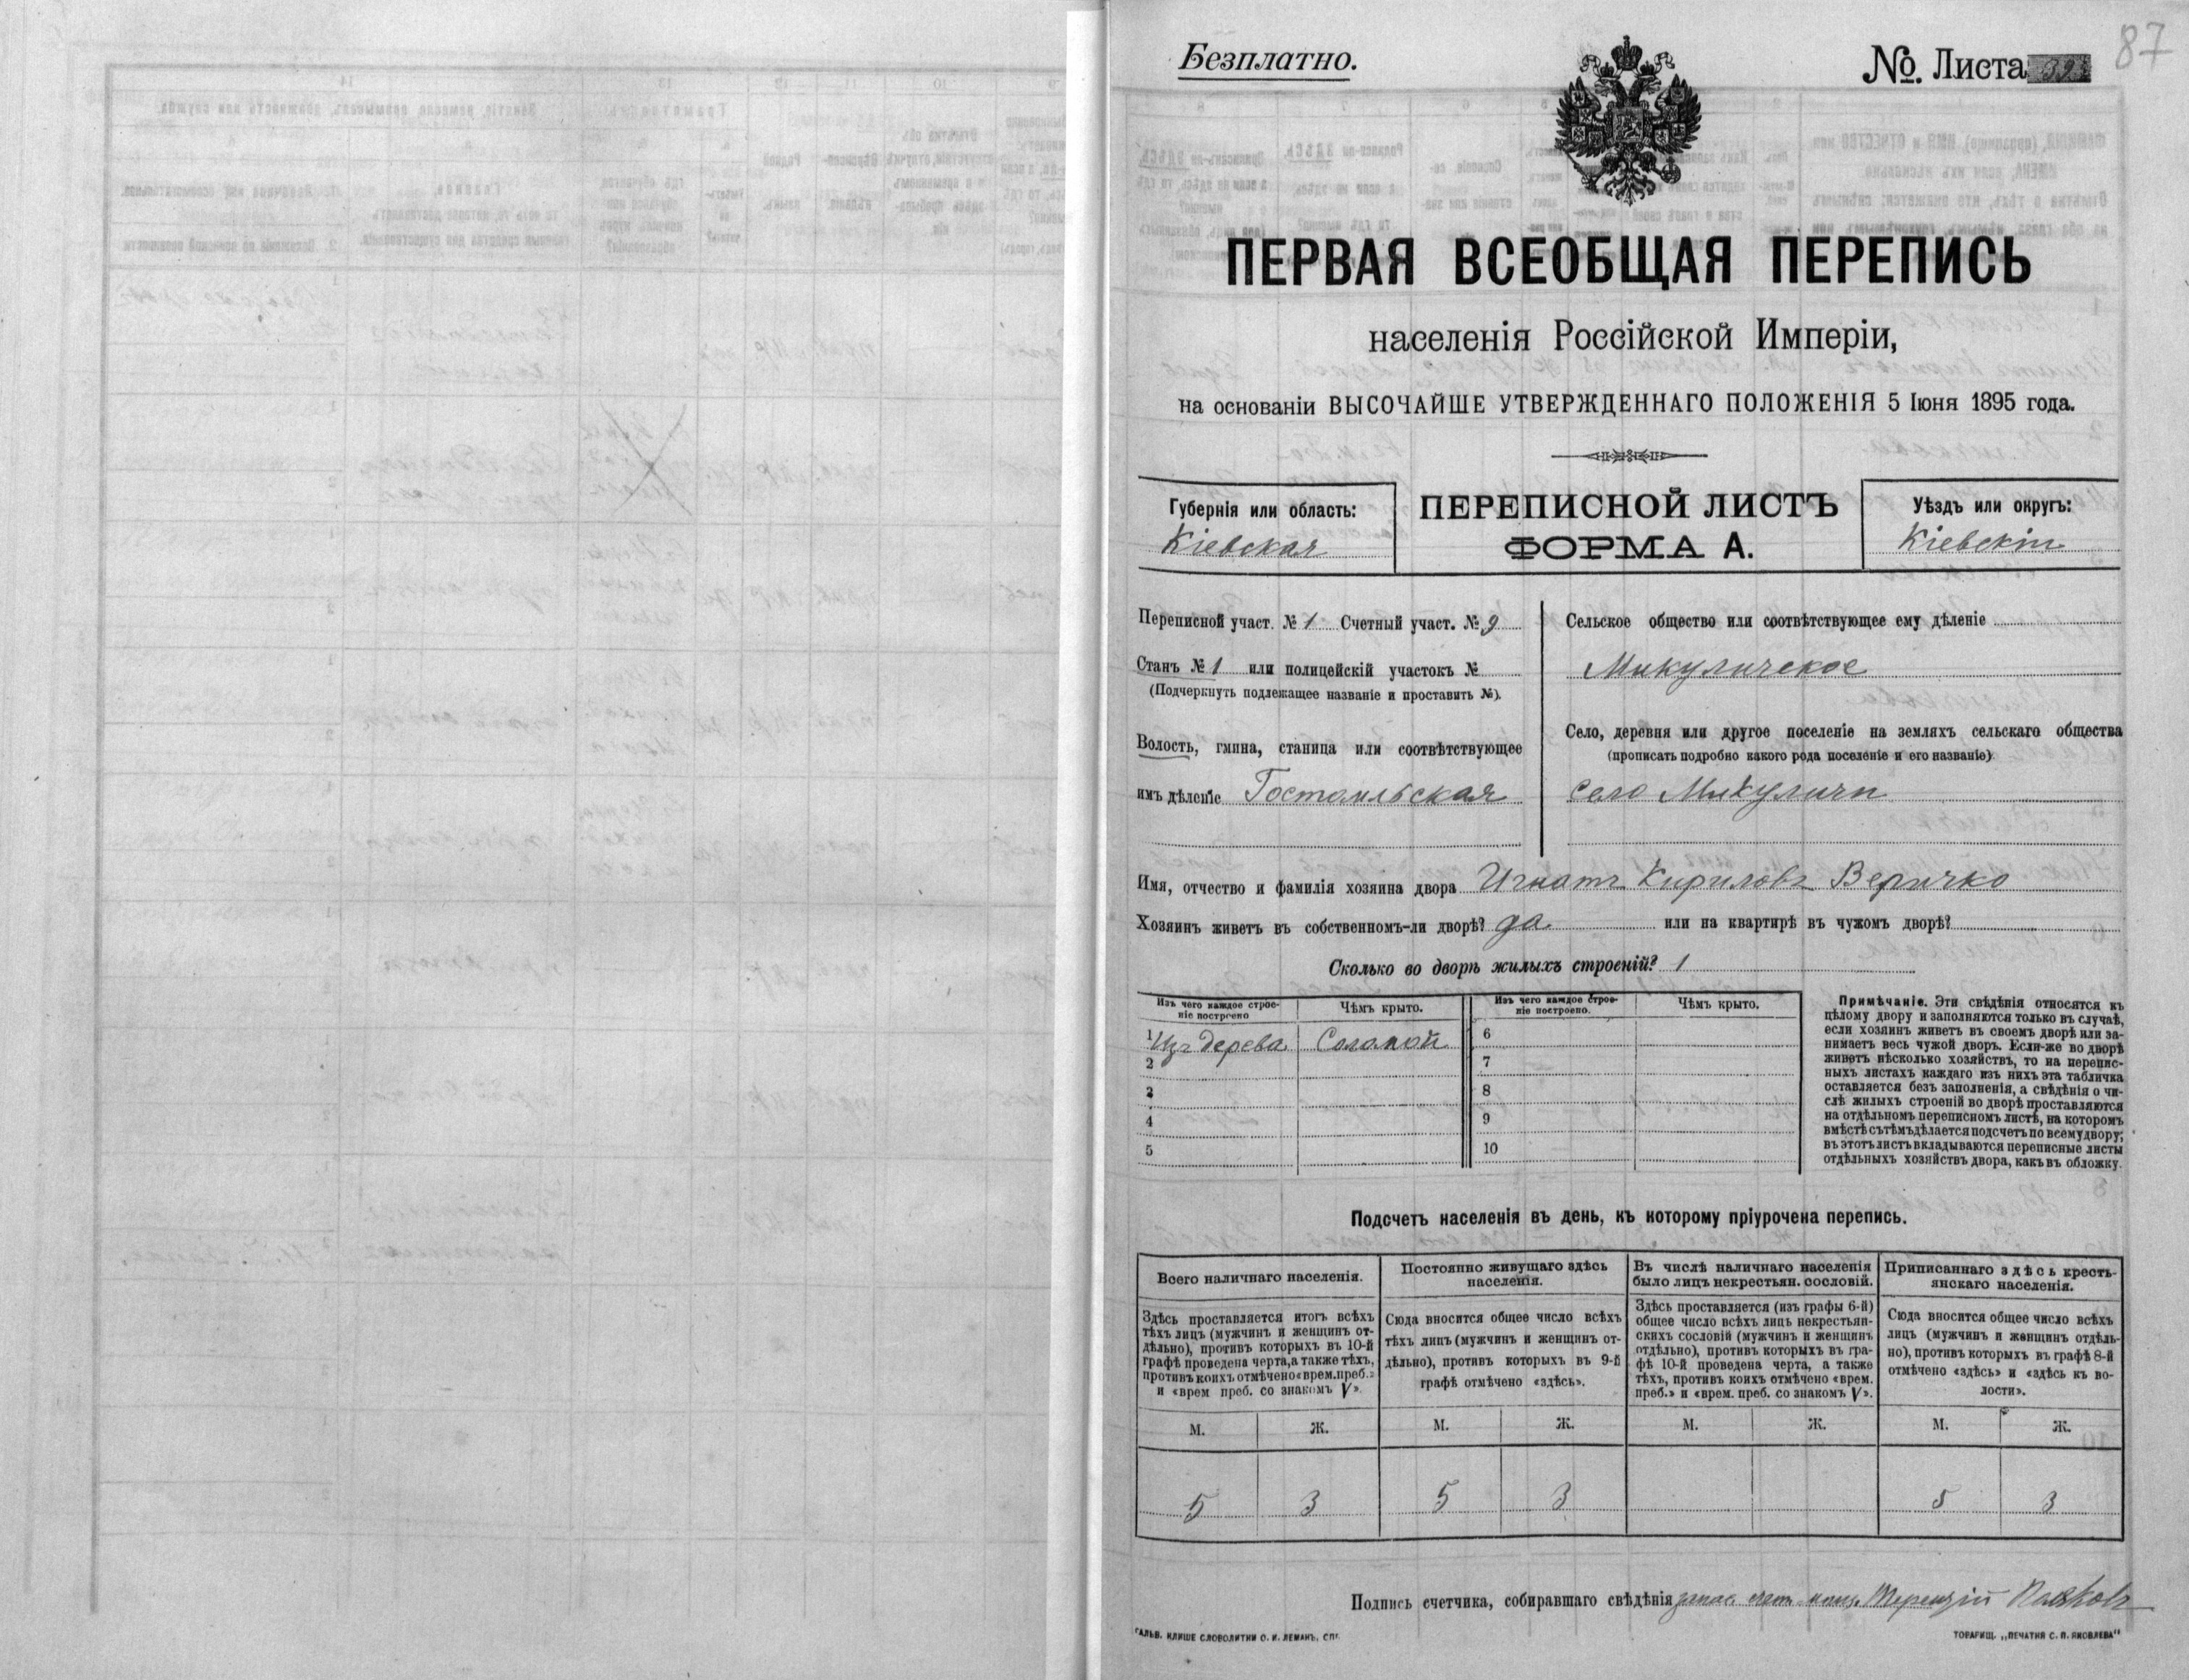 87
Безплатно.
№. Листа 39
ПЕРВАЯ ВСЕОБЩАЯ ПЕРЕПИСЬ
населенія Россійской Имперіи,
на основаніи ВЫСОЧАЙШЕ УТВЕРЖДЕННАГО ПОЛОЖЕНІЯ 5 Іюня 1895 года.
Губернія или область:
Кіевская
ПЕРЕПИСНОЙ ЛИСТЪ
ФОРМА А.
Уѣздъ или округъ:
Кіевскій
Переписной участ. № 1 Счетный участ. № 9
Станъ № 1 или полицейскій участокъ №
(Подчеркнуть подлежащее названіе и проставить №).
Волость, гмина, станица или соотвѣтствующее
имъ дѣленіе Гостомльская
Сельское общество или соотвѣтствующее ему дѣленіе
Микуличское
Село, деревня или другое поселеніе на земляхъ сельскаго общества
(прописать подробно какого рода поселеніе и его названіе)
село Микуличи
Имя, отчество и фамилія хозяина двора Игнатъ Кириловъ Величко
Хозяинъ живетъ въ собственномъ-ли дворѣ? да или на квартирѣ въ чужомъ дворѣ?
Сколько во дворѣ жилыхъ строеній? 1
Изъ чего каждое строе-
ніе построено
Чѣмъ крыто.
Изъ чего каждое строе-
ніе построено.
Чѣмъ крыто.
1 Изъ дерева Соломой 6
2 7
3 8
4 9
5 10
Примѣчаніе. Эти свѣдѣнія относятся къ
цѣлому двору и заполняются только въ случаѣ,
если хозяинъ живетъ въ своемъ дворѣ или за-
нимаетъ весь чужой дворъ. Если-же во дворѣ
живетъ нѣсколько хозяйствъ, то на перепис-
ныхъ листахъ каждаго изъ нихъ эта табличка
оставляется безъ заполненія, а свѣдѣнія о чи-
слѣ жилыхъ строеній во дворѣ проставляются
на отдѣльномъ переписномъ листѣ, на которомъ
вмѣстѣ съ тѣмъ дѣлается подсчетъ по всему двору;
въ этотъ листъ вкладываются переписные листы
отдѣльныхъ хозяйствъ двора, какъ въ обложку.
Подсчетъ населенія въ день, къ которому пріурочена перепись.
Всего наличнаго населенія.
Здѣсь проставляется итогъ всѣхъ
тѣхъ лицъ (мужчинъ и женщинъ от-
дѣльно), противъ которыхъ въ 10-й
графѣ проведена черта, а также тѣхъ,
противъ коихъ отмѣчено «врем. преб.»
и «врем преб. со знакомъ V».
М. Ж.
5 3
Постоянно живущаго здѣсь
населенія.
Сюда вносится общее число всѣхъ
тѣхъ лицъ (мужчинъ и женщинъ от-
дѣльно), противъ которыхъ въ 9-й
графѣ отмѣчено «здѣсь».
М. Ж.
5 3
Въ числѣ наличнаго населенія
было лицъ некрестьян. сословій.
Здѣсь проставляется (изъ графы 6-й)
общее число всѣхъ лицъ некрестьян-
скихъ сословій (мужчинъ и женщинъ
отдѣльно), противъ которыхъ въ гра-
фѣ 10-й проведена черта, а также
тѣхъ, противъ коихъ отмѣчено «врем.
преб.» и «врем. преб. со знакомъ V».
М. Ж.
Приписаннаго здѣсь кресть-
янскаго населенія.
Сюда вносится общее число всѣхъ
лицъ (мужчинъ и женщинъ отдѣль-
но), противъ которыхъ въ графѣ 8-й
отмѣчено «здѣсь» и «здѣсь къ во-
лости».
М. Ж.
5 3
Подпись счетчика, собиравшаго свѣдѣнія запас. Терентій
ГАЛЬВ. КЛИШЕ СЛОВОЛИТНИ О. И. ЛЕМАНЪ, СПБ.
ТОВАРИЩ. „ПЕЧАТНЯ С. П. ЯКОВЛЕВА"